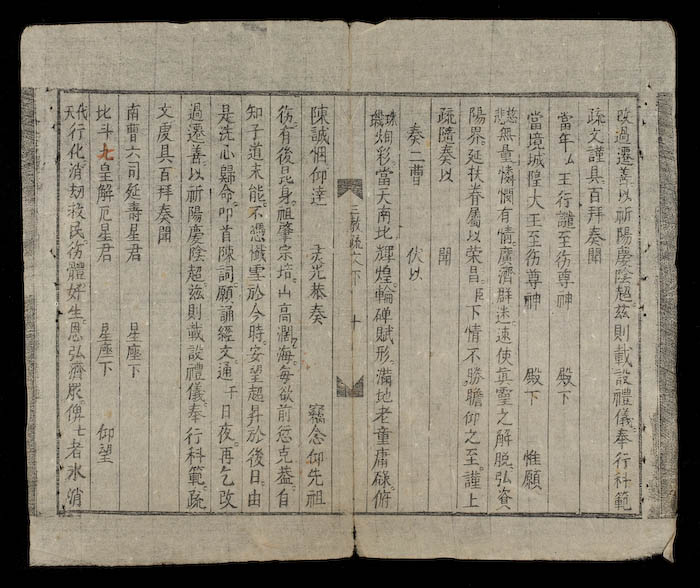 改過遷善以祈陽慶陰超茲則載設禮儀奉行科範
疏文謹具百拜奏聞
當年 王行譴至彷尊神 殿下
當境城隍大王至彷尊神 殿下 惟願
慈悲無量憐憫有情廣濟群迷速使真靈之解脫弘資
陽界延扶眷屬以榮昌臣下情不勝瞻仰之至謹上
疏隨奏以 聞
奏二曹 伏以
珠璣絢彩當天南北輝煌輪碑賦形滿地老童庸碌俯
三教疏文下 十
陳誠悃仰達 天光恭奏 竊念仰先祖
彷有後昆身祖肇宗培山高濶海每欲前愆克蓋自
知子道未能不憑懺雪於今時安望超昇於後日由
是洗心歸命叩首陳詞願誦經文通于日夜再乞改
過遷善以祈陽慶陰超茲則載設禮儀奉行科範疏
文虔具百拜奏聞
南曹六司延壽星君 星座下
北斗九皇解厄星君 星座下 仰望
代天行化消劫救民彷體好生恩弘濟 俾士者氷消